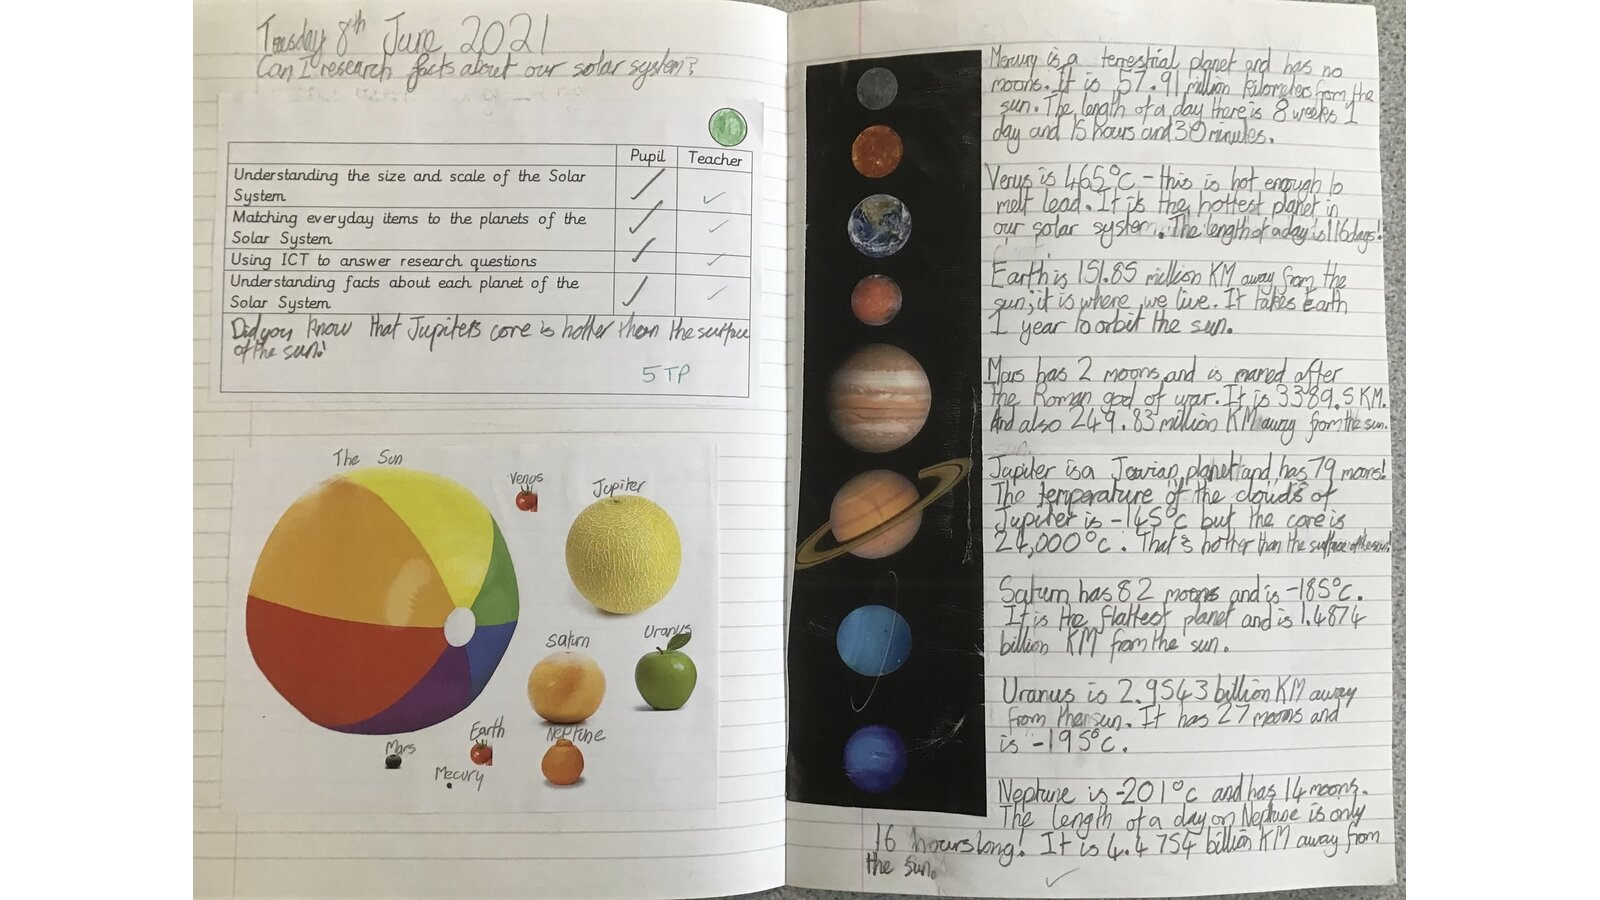 Tuesday 8th June 2021
Can I research facts about our solar system?
Pupil Teacher
Understanding the size and scale of the Solar
System
Matching everyday items to the planets of the
Solar System
Using ICT to answer research questions
Understanding facts about each planet of the
Solar System
Did you know that Jupiters core is hotter than the surface
of the sun!
5 TP
The Sun
Venus
Jupiter
Saturn
Uranus
Earth
Neptune
Mars
Mecury
Mercury is a terrestrial planet and has no
moons. It is 57.91 million kilometers from the
sun. The length of a day there is 8 weeks 1
day and 15 hours and 30 minutes.
Venus is 465°c - this is hot enough to
melt lead. It is the hottest planet in
our solar system. The length of a day is 116 days!
Earth is 151.85 million KM away from the
sun; it is where we live. It takes earth
1 year to orbit the sun.
Mars has 2 moons and is named after
the Roman god of war. It is 3389.5 KM.
And also 249.83 million KM away from the sun.
Jupiter is a Jovian planet and has 79 moons!
The temperature of the clouds of
Jupiter is -145°c but the core is
24,000°c. That's hotter than the surface of the sun!
Saturn has 82 moons and is -185°c.
It is the flattest planet and is 1.4874
billion KM from the sun.
Uranus is 2.9543 billion KM away
from the sun. It has 27 moons and
is -195°c.
Neptune is -201°c and has 14 moons.
The length of a day on Neptune is only
16 hours long! It is 4.4754 billion KM away from
the sun.